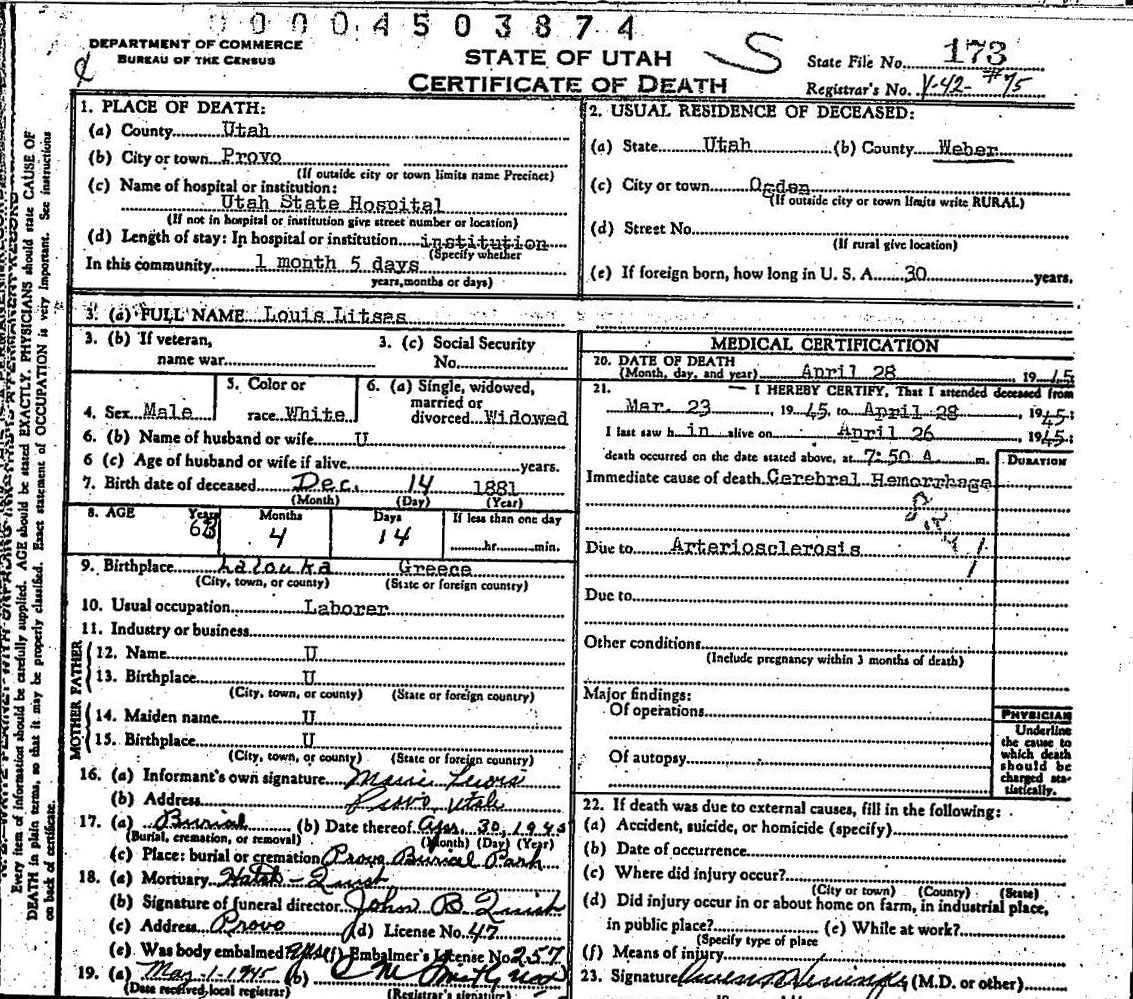 0004503874
DEPARTMENT OF COMMERCE
BUREAU OF THE CENSUS
STATE OF UTAH
CERTIFICATE OF DEATH
S
State File No. 173
Registrar's No. V-42- #75
Every item of information should be carefully supplied. AGE should be stated EXACTLY. PHYSICIANS should state CAUSE OF
DEATH in plain terms, so that it may be properly classified. Exact statement of OCCUPATION is very important. See instructions
on back of certificate.
1. PLACE OF DEATH:
(a) County Utah
(b) City or town Provo
(If outside city or town limits name Precinct)
(c) Name of hospital or institution:
Utah State Hospital
(If not in hospital or institution give street number or location)
(d) Length of stay: In hospital or institution institution
(Specify whether
In this community 1 month 5 days
years, months or days)
2. USUAL RESIDENCE OF DECEASED:
(a) State Utah (b) County Weber
(c) City or town Ogden
(If outside city or town limits write RURAL)
(d) Street No.
(If rural give location)
(e) If foreign born, how long in U. S. A. 30 years.
3. (a) FULL NAME Louis Litsas
3. (b) If veteran, name war
3. (c) Social Security No.
4. Sex Male
5. Color or race White
6. (a) Single, widowed, married or divorced Widowed
6. (b) Name of husband or wife U
6 (c) Age of husband or wife if alive years.
7. Birth date of deceased Dec. 14 1881
(Month) (Day) (Year)
8. AGE Years Months Days If less than one day
63 4 14 hr. min.
9. Birthplace Lalouka Greece
(City, town, or county) (State or foreign country)
10. Usual occupation Laborer
11. Industry or business
FATHER
12. Name U
13. Birthplace U
(City, town, or county) (State or foreign country)
MOTHER
14. Maiden name U
15. Birthplace U
(City, town, or county) (State or foreign country)
16. (a) Informant's own signature Marie Lewis
(b) Address Provo Utah
17. (a) Burial (b) Date thereof Apr. 30, 1945
(Burial, cremation, or removal) (Month) (Day) (Year)
(c) Place: burial or cremation Provo Burial Park
18. (a) Mortuary Hatch-Quist
(b) Signature of funeral director John B Quist
(c) Address Provo (d) License No. 47
(e) Was body embalmed yes (f) Embalmer's License No. 257
19. (a) May-1-1945 (b)
(Date received local registrar) (Registrar's signature)
MEDICAL CERTIFICATION
20. DATE OF DEATH
(Month, day, and year) April 28 1945
21. — I HEREBY CERTIFY, That I attended deceased from
Mar. 23, 1945, to April 28, 1945;
I last saw h in alive on April 26, 1945;
death occurred on the date stated above, at 7:50 A. m.
DURATION
Immediate cause of death Cerebral Hemorrhage
Due to Arteriosclerosis
Due to
Other conditions
(Include pregnancy within 3 months of death)
Major findings:
Of operations
Of autopsy
PHYSICIAN
Underline
the cause to
which death
should be
charged sta-
tistically.
22. If death was due to external causes, fill in the following:
(a) Accident, suicide, or homicide (specify)
(b) Date of occurrence
(c) Where did injury occur?
(City or town) (County) (State)
(d) Did injury occur in or about home on farm, in industrial place,
in public place? (e) While at work?
(Specify type of place
(f) Means of injury
23. Signature (M.D. or other)